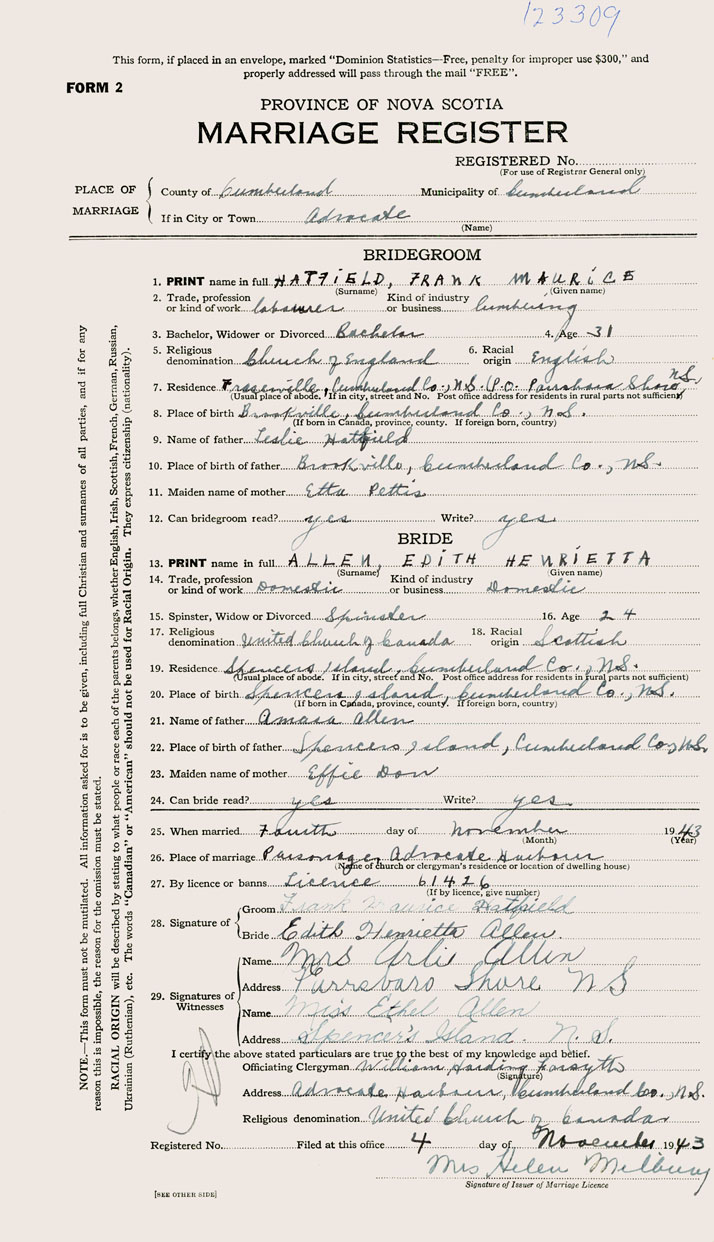 123309
This form, if placed in an envelope, marked "Dominion Statistics—Free, penalty for improper use $300," and
properly addressed will pass through the mail "FREE".
FORM 2
PROVINCE OF NOVA SCOTIA
MARRIAGE REGISTER
REGISTERED No.
(For use of Registrar General only)
PLACE OF MARRIAGE
County of Cumberland Municipality of Cumberland
If in City or Town Advocate
(Name)
BRIDEGROOM
1. PRINT name in full HATFIELD, FRANK MAURICE
(Surname) (Given name)
2. Trade, profession or kind of work labourer Kind of industry or business lumbering
3. Bachelor, Widower or Divorced Bachelor 4. Age 31
5. Religious denomination Church of England 6. Racial origin English
7. Residence Fraserville, Cumberland Co., N.S. (P.O. Parrsboro Shore, N.S.
(Usual place of abode. If in city, street and No. Post office address for residents in rural parts not sufficient)
8. Place of birth Brookville, Cumberland Co., N.S.
(If born in Canada, province, county. If foreign born, country)
9. Name of father Leslie Hatfield
10. Place of birth of father Brookville, Cumberland Co., N.S.
11. Maiden name of mother Etta Pettis
12. Can bridegroom read? yes Write? yes
BRIDE
13. PRINT name in full ALLEN, EDITH HENRIETTA
(Surname) (Given name)
14. Trade, profession or kind of work Domestic Kind of industry or business Domestic
15. Spinster, Widow or Divorced Spinster 16. Age 24
17. Religious denomination United Church of Canada 18. Racial origin Scottish
19. Residence Spencers Island, Cumberland Co., N.S.
(Usual place of abode. If in city, street and No. Post office address for residents in rural parts not sufficient)
20. Place of birth Spencers Island, Cumberland Co., N.S.
(If born in Canada, province, county. If foreign born, country)
21. Name of father Amasa Allen
22. Place of birth of father Spencers Island, Cumberland Co., N.S.
23. Maiden name of mother Effie Don
24. Can bride read? yes Write? yes
25. When married Fourth day of November 1943
(Month) (Year)
26. Place of marriage Parsonage, Advocate Harbour
(Name of church or clergyman's residence or location of dwelling house)
27. By licence or banns Licence 61426
(If by licence, give number)
28. Signature of
Groom Frank Maurice Hatfield
Bride Edith Henrietta Allen.
29. Signatures of Witnesses
Name Mrs Arli Allen
Address Parrsboro Shore N S
Name Miss Ethel Allen
Address Spencer's Island. N. S.
I certify the above stated particulars are true to the best of my knowledge and belief.
Officiating Clergyman William Harding Forsyth
(Signature)
Address Advocate Harbour, Cumberland Co., N.S.
Religious denomination United Church of Canada
Registered No. Filed at this office 4 day of November 1943
Mrs Helen Milbury
Signature of Issuer of Marriage Licence
[SEE OTHER SIDE]
NOTE.—This form must not be mutilated. All information asked for is to be given, including full Christian and surnames of all parties, and if for any
reason this is impossible, the reason for the omission must be stated.
RACIAL ORIGIN will be described by stating to what people or race each of the parents belongs, whether English, Irish, Scottish, French, German, Russian,
Ukrainian (Ruthenian), etc. The words "Canadian" or "American" should not be used for Racial Origin. They express citizenship (nationality).